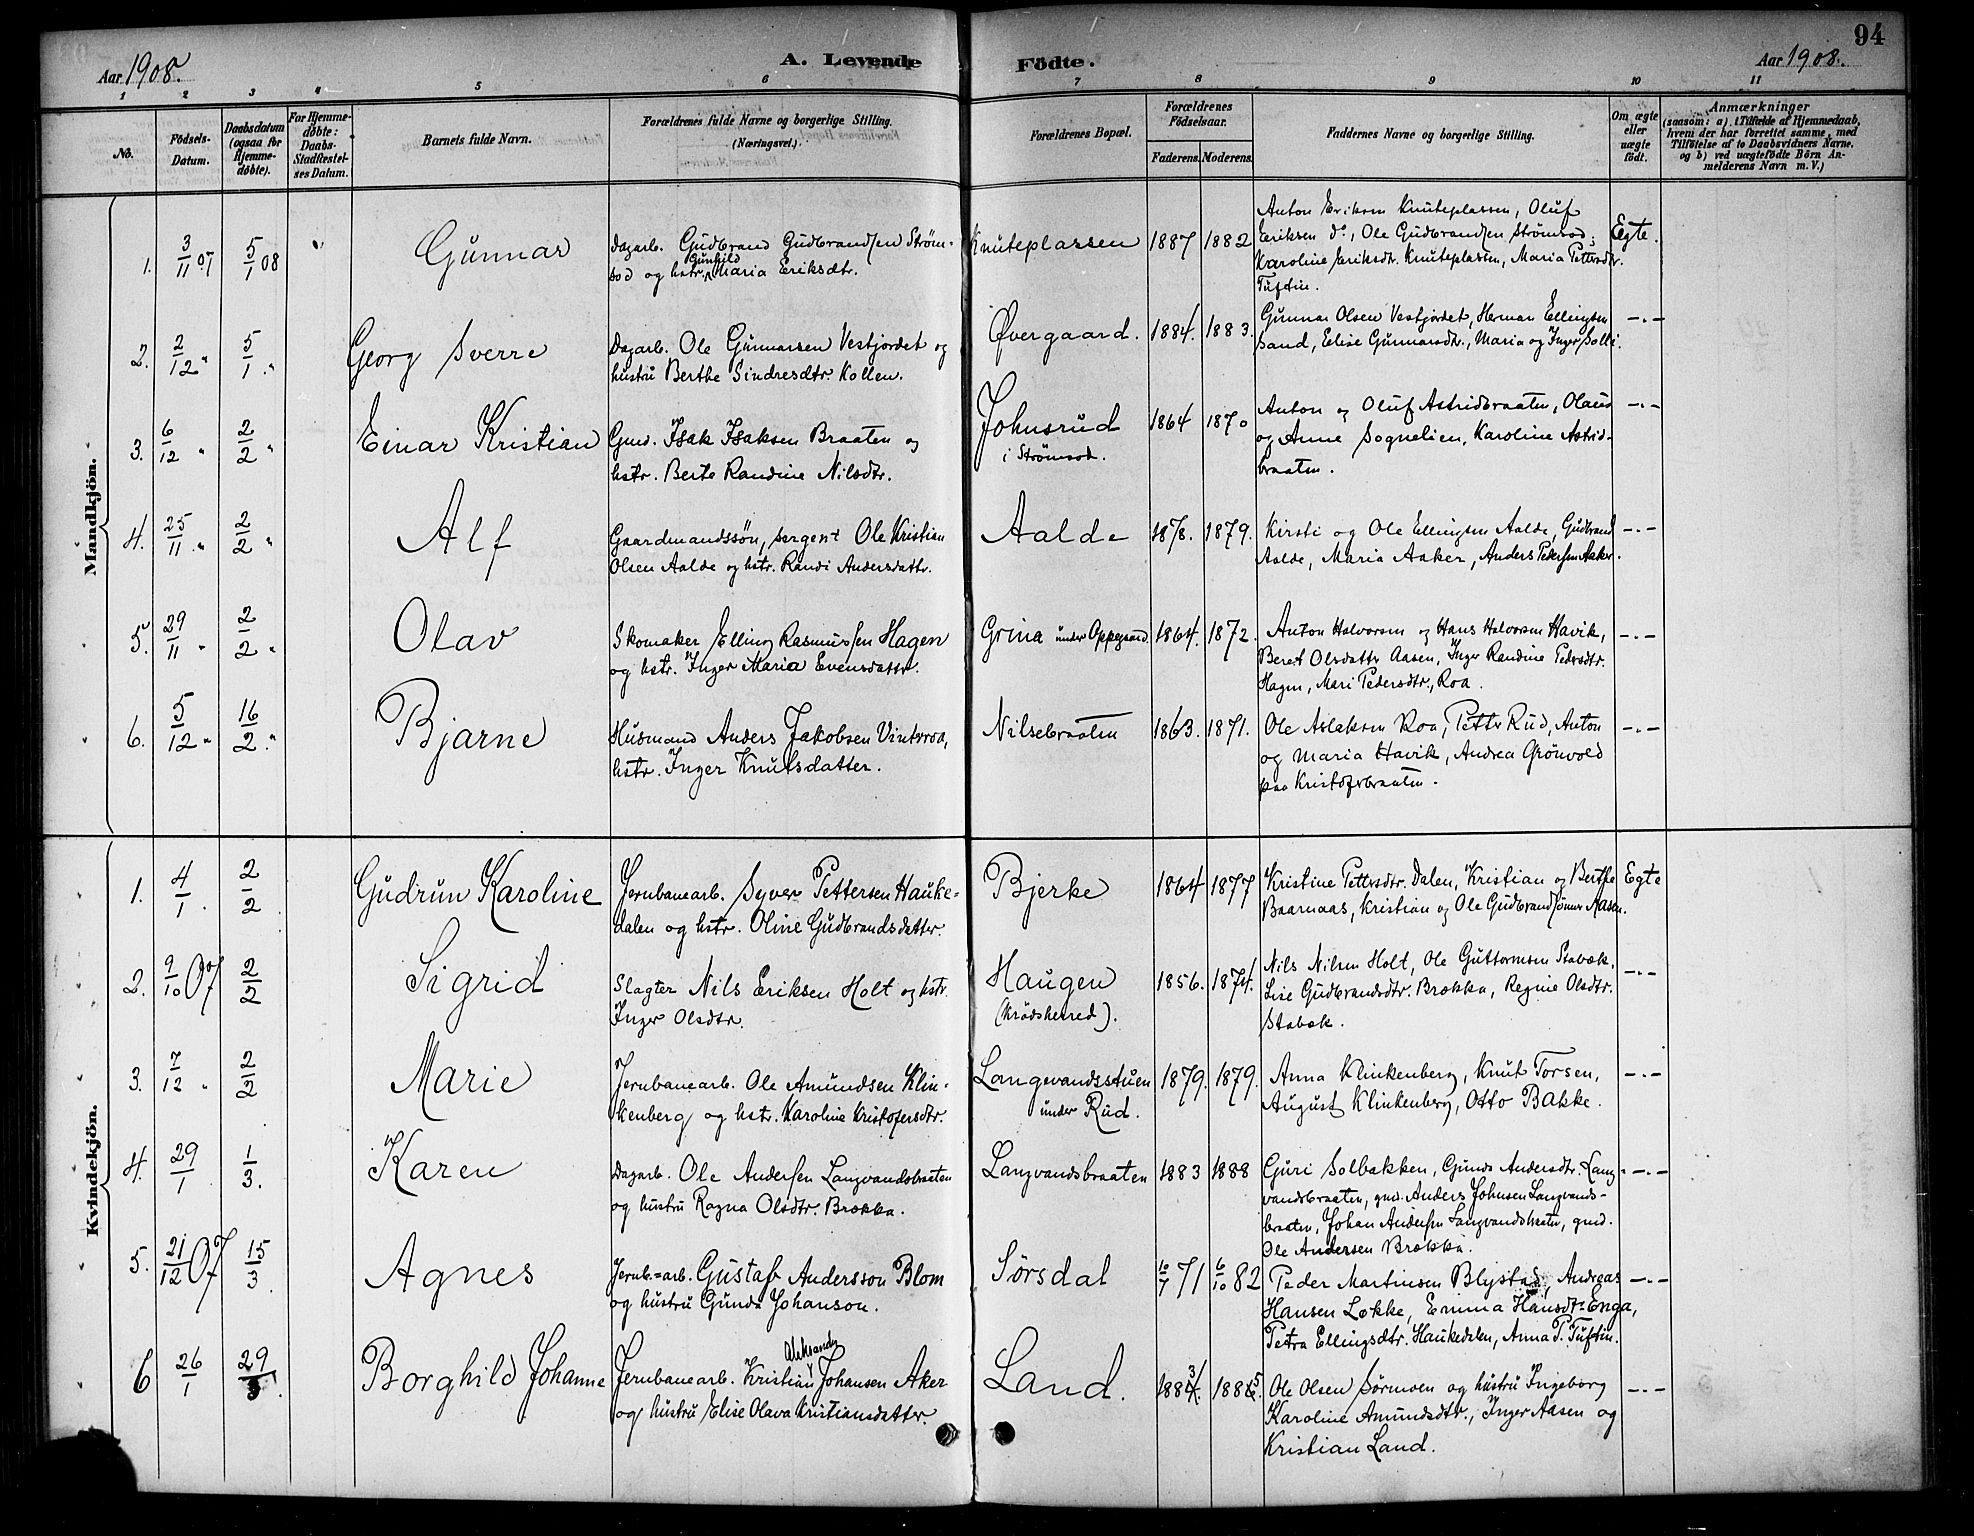 94
Aar 1908.
A. Levende Fødte.
Aar 1908.
1 2 3 4 5 6 7 8 9 10 11
No.
Fødsels-
Datum.
Daabsdatum
(ogsaa for
Hjemme-
døbte).
For Hjemme-
døbte:
Daabs-
Stadfæstel-
ses Datum.
Barnets fulde Navn.
Forældrenes fulde Navne og borgerlige Stilling.
(Næringsvei.)
Forældrenes Bopæl.
Forældrenes
Fødselsaar.
Faderens. Moderens.
Faddernes Navne og borgerlige Stilling.
Om ægte
eller
uægte
født.
Anmærkninger
(saasom: a) i Tilfælde af Hjemmedaab,
hvem der har forrettet samme, med
Tilføielse af to Daabsvidners Navne,
og b) ved uægtefødte Børn An-
melderens Navn m. V.)
Mandkjön.
1. 3/11 07 5/1 08 " Gunnar
Dagarb. Gudbrand Gudbrandsen Strøm-
sod og hstr. Gunhild Maria Eriksdtr.
Knuteplassen 1887 1882
Anton Eriksen Knuteplassen, Oluf
Eriksen do, Ole Gudbrandsen Strømsod,
Karoline Eriksdtr. Knuteplassen, Maria Pettersdtr.
Tuftin.
Egte.
2. 2/12 " 5/1 " Georg Sverre
Dagarb. Ole Gunnarsen Vestjordet og
hustru Berthe Sindresdtr. Kollen.
Øvergaard. 1884. 1883.
Gunnar Olsen Vestjordet, Herman Ellingsen
Sand, Elise Gunnarsdtr., Maria og Inger Solli.
-"-
3. 6/12 " 2/2 " Einar Kristian
Gmd. Isak Isaksen Braaten og
hstr. Berte Randine Nilsdtr.
Johnsrud
i Strømsod.
1864 1870
Anton og Oluf Astridbraaten, Olaus
og Anne Sognelien, Karoline Astrid-
braaten.
-"-
4. 25/11 " 2/2 " Alf
Gaardmandssøn, sergent Ole Kristian
Olsen Aalde og hstr. Randi Andersdatter.
Aalde 1878. 1879.
Kirsti og Ole Ellingsen Aalde, Gudbrand
Aalde, Maria Aaker, Anders Pedersen Aaker.
-"-
5. 29/11 " 2/2 " Olav
Skomaker Elling Rasmussen Hagen
og hstr. Inger Maria Evensdatter.
Grina under Oppegaard 1864. 1872.
Anton Halvorsen og Hans Halvorsen Havik,
Beret Olsdatter Aasen, Inger Randine Pedersdtr.
Hagen, Mari Pedersdtr., Roa.
-"-
6. 5/12 " 16/2 " Bjarne
Husmand Anders Jakobsen Vinterroa,
hstr. Inger Knutsdatter.
Nilsebraaten 1863. 1871.
Ole Aslaksen Roa, Petter Rud, Anton
og Maria Havik, Andrea Grönvold
paa Kristofersbraaten.
-"-
Kvindekjön.
1. 4/1 . 2/2 Gudrun Karoline
Jernbanearb. Syver Pettersen Hauke-
dalen og hstr. Oline Gudbrandsdatter.
Bjerke 1864 1877
Kristine Pettersdtr. Dalen, Kristian og Berthe
Baarnaas, Kristian og Ole Gudbrandsönner Aasen.
Egte
2. 9/10 07 2/2 Sigrid
Slagter Nils Eriksen Holt og hstr.
Inger Olsdtr.
Haugen
(Krödsherred).
1856. 1874.
Nils Nilsen Holt, Ole Guttormsen Stabæk,
Lise Gudbrandsdtr. Brækka, Regine Olsdtr.
Stabæk.
-"-
3. 7/12 " 2/2 Marie
Jernbanearb. Ole Amundsen Klin-
kenberg og hstr. Karoline Kristofersdtr.
Langevandsstuen
under Rud.
1879. 1879.
Anna Klinkenberg, Knut Torsen,
August Klinkenberg, Otto Bakke.
-"-
4. 29/1 . 1/3. Karen
Dagarb. Ole Andersen Langvandsbraaten
og hustru Ragna Olsdtr. Brækka.
Langvandsbraaten 1883 1888
Guri Solbakken, Gunda Andersdtr. Lang-
vandsbraaten, gmd. Anders Johnsen Langvands-
braaten, Johan Andersen Langvandsbraaten, gmd.
Ole Andersen Brækka.
-"-
5. 21/12 07 15/3 Agnes
Jernb.=arb. Gustaf Andersson Blom
og hustru Gunda Johanson.
Sørsdal 10/7 71 6/10 82
Peder Martinsen Blystad, Andreas
Hansen Løkke, Emma Hansdtr. Enga,
Petra Ellingsdtr. Haukedalen, Anna P. Tuftin.
-"-
6 26/1 29/3. Borghild Johanne
Jernbanearb. Kristian Aleksander Johansen Aker
og hustru Elise Olava Kristiansdatter.
Land. 1883. 1885.
Ole Olsen Sörmoen og hustru Ingeborg
Karoline Amundsdtr., Inger Aasen og
Kristian Land.
-"-